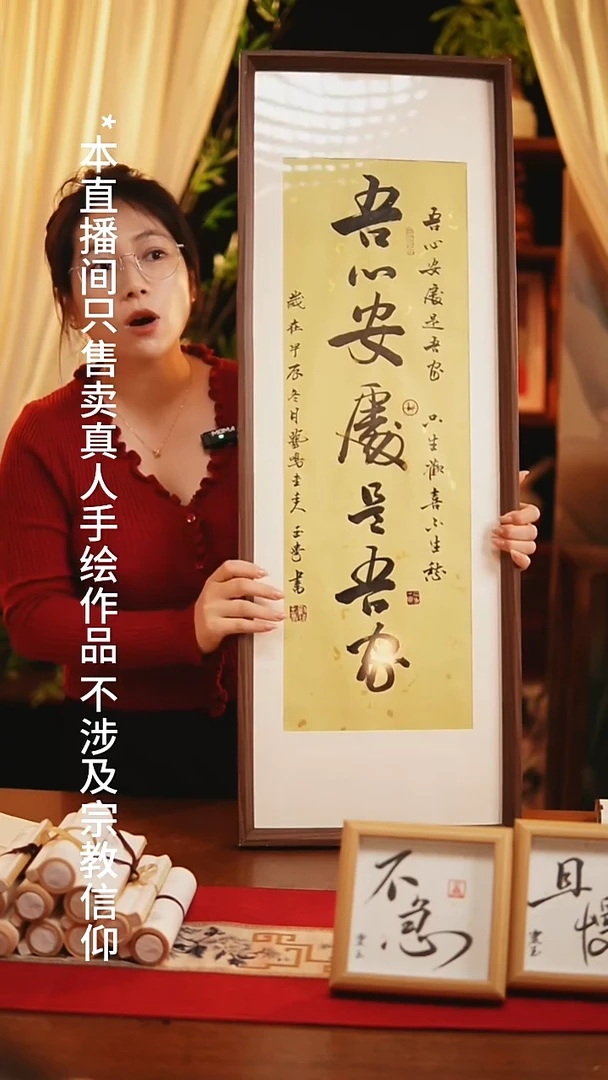 *本直播间只售卖真人手绘作品 不涉及宗教信仰
吾心安處是吾家
吾心安處是吾家 只生歡喜不生愁
歲在甲辰冬月
書
不急
且慢